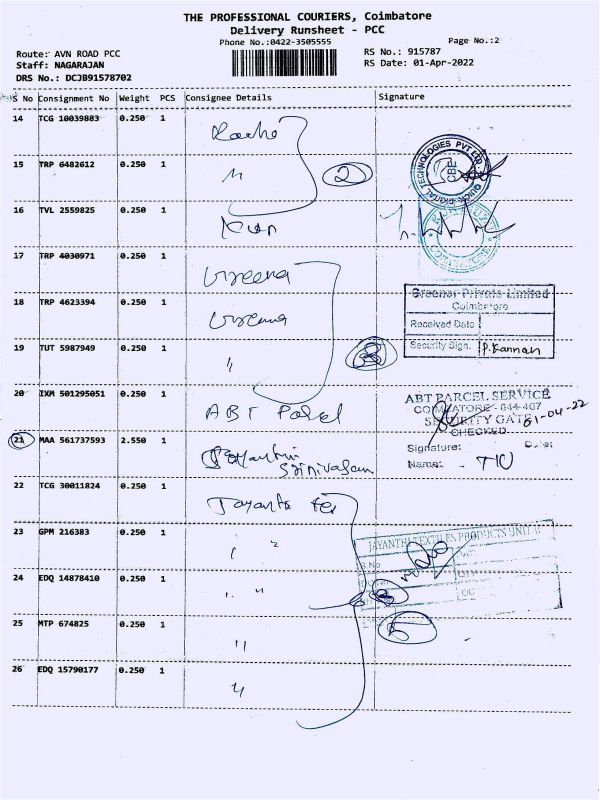 THE PROFESSIONAL COURIERS, Coimbatore
Delivery Runsheet - PCC
Phone No.:0422-3505555
Page No.:2
Route: AVN ROAD PCC
RS No.: 915787
Staff: NAGARAJAN
RS Date: 01-Apr-2022
DRS No.: DCJB91578702
S No Consignment No Weight PCS Consignee Details Signature
14 TCG 10039883 0.250 1
QUICK DIGITAL TECHNOLOGIES PVT LTD
CBE
15 TRP 6482612 0.250 1 " 2
16 TVL 2559825 0.250 1
17 TRP 4030971 0.250 1
18 TRP 4623394 0.250 1
Greener Private Limited
Coimbatore
Received Date
Security Sign. P. Kannan
19 TUT 5987949 0.250 1 "
20 IXM 501295051 0.250 1 ABT Parcel
ABT PARCEL SERVICE
COIMBATORE - 641 407
SECURITY GATE
CHECKED
01-04-22
21 MAA 561737593 2.550 1 Srinivasan
Signature: Date:
Name:
22 TCG 30011824 0.250 1 Jayanthi Tex
JAYANTHI TEXTILES PRODUCTS UNIT II
23 GPM 216383 0.250 1 "
24 EDQ 14878410 0.250 1 "
25 MTP 674825 0.250 1 " 5
26 EDQ 15790177 0.250 1 "